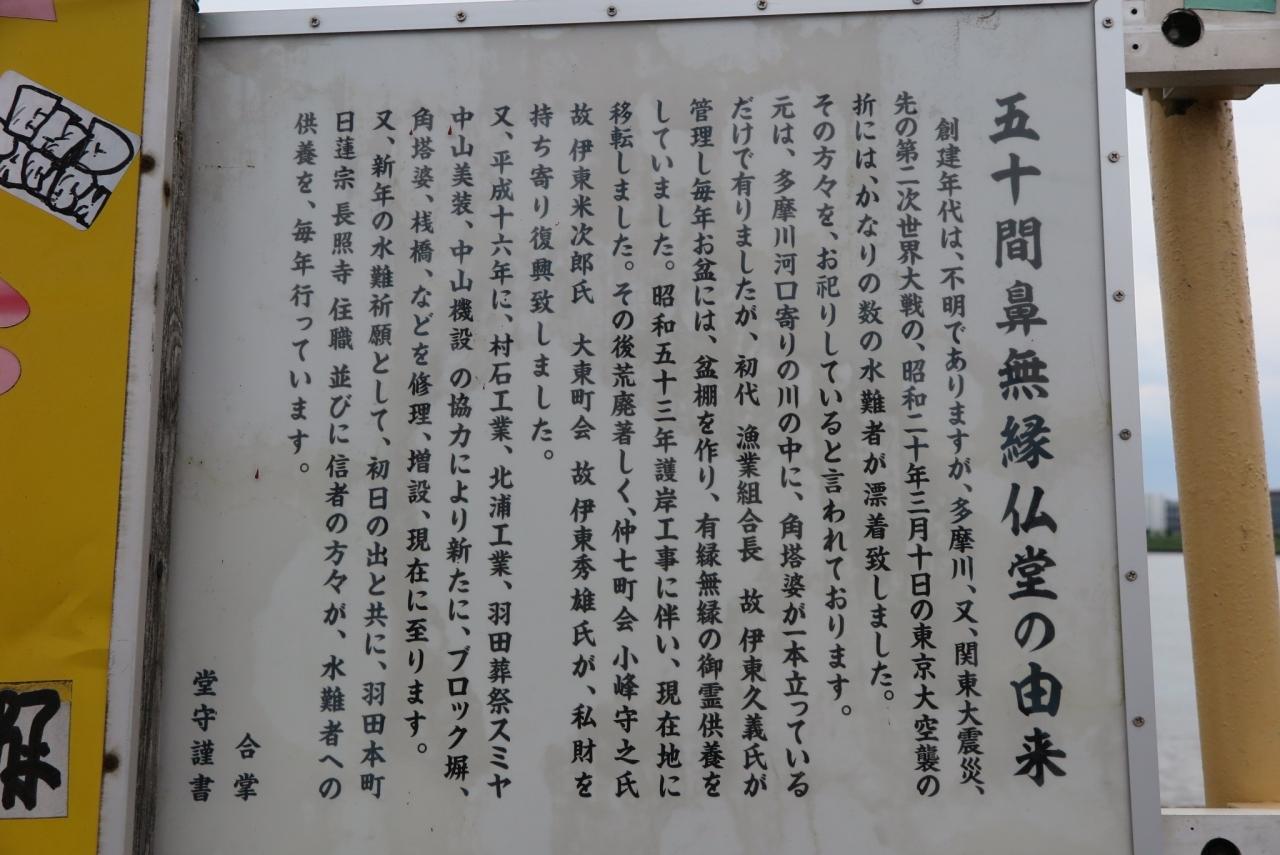 五十間鼻無縁仏堂の由来
創建年代は、不明でありますが、多摩川、又、関東大震災、
先の第二次世界大戦の、昭和二十年三月十日の東京大空襲の
折には、かなりの数の水難者が漂着致しました。
その方々を、お祀りしていると言われております。
元は、多摩川河口寄りの川の中に、角塔婆が一本立っている
だけで有りましたが、初代 漁業組合長 故 伊東久義氏が
管理し毎年お盆には、盆棚を作り、有縁無縁の御霊供養を
していました。昭和五十三年護岸工事に伴い、現在地に
移転しました。その後荒廃著しく、仲七町会 小峰守之氏
故 伊東米次郎氏 大東町会 故 伊東秀雄氏が、私財を
持ち寄り復興致しました。
又、平成十六年に、村石工業、北浦工業、羽田葬祭スミヤ
中山美装、中山機設 の協力により新たに、ブロック塀、
角塔婆、桟橋、などを修理、増設、現在に至ります。
又、新年の水難祈願として、初日の出と共に、羽田本町
日蓮宗 長照寺 住職 並びに信者の方々が、水難者への
供養を、毎年行っています。
合掌
堂守謹書